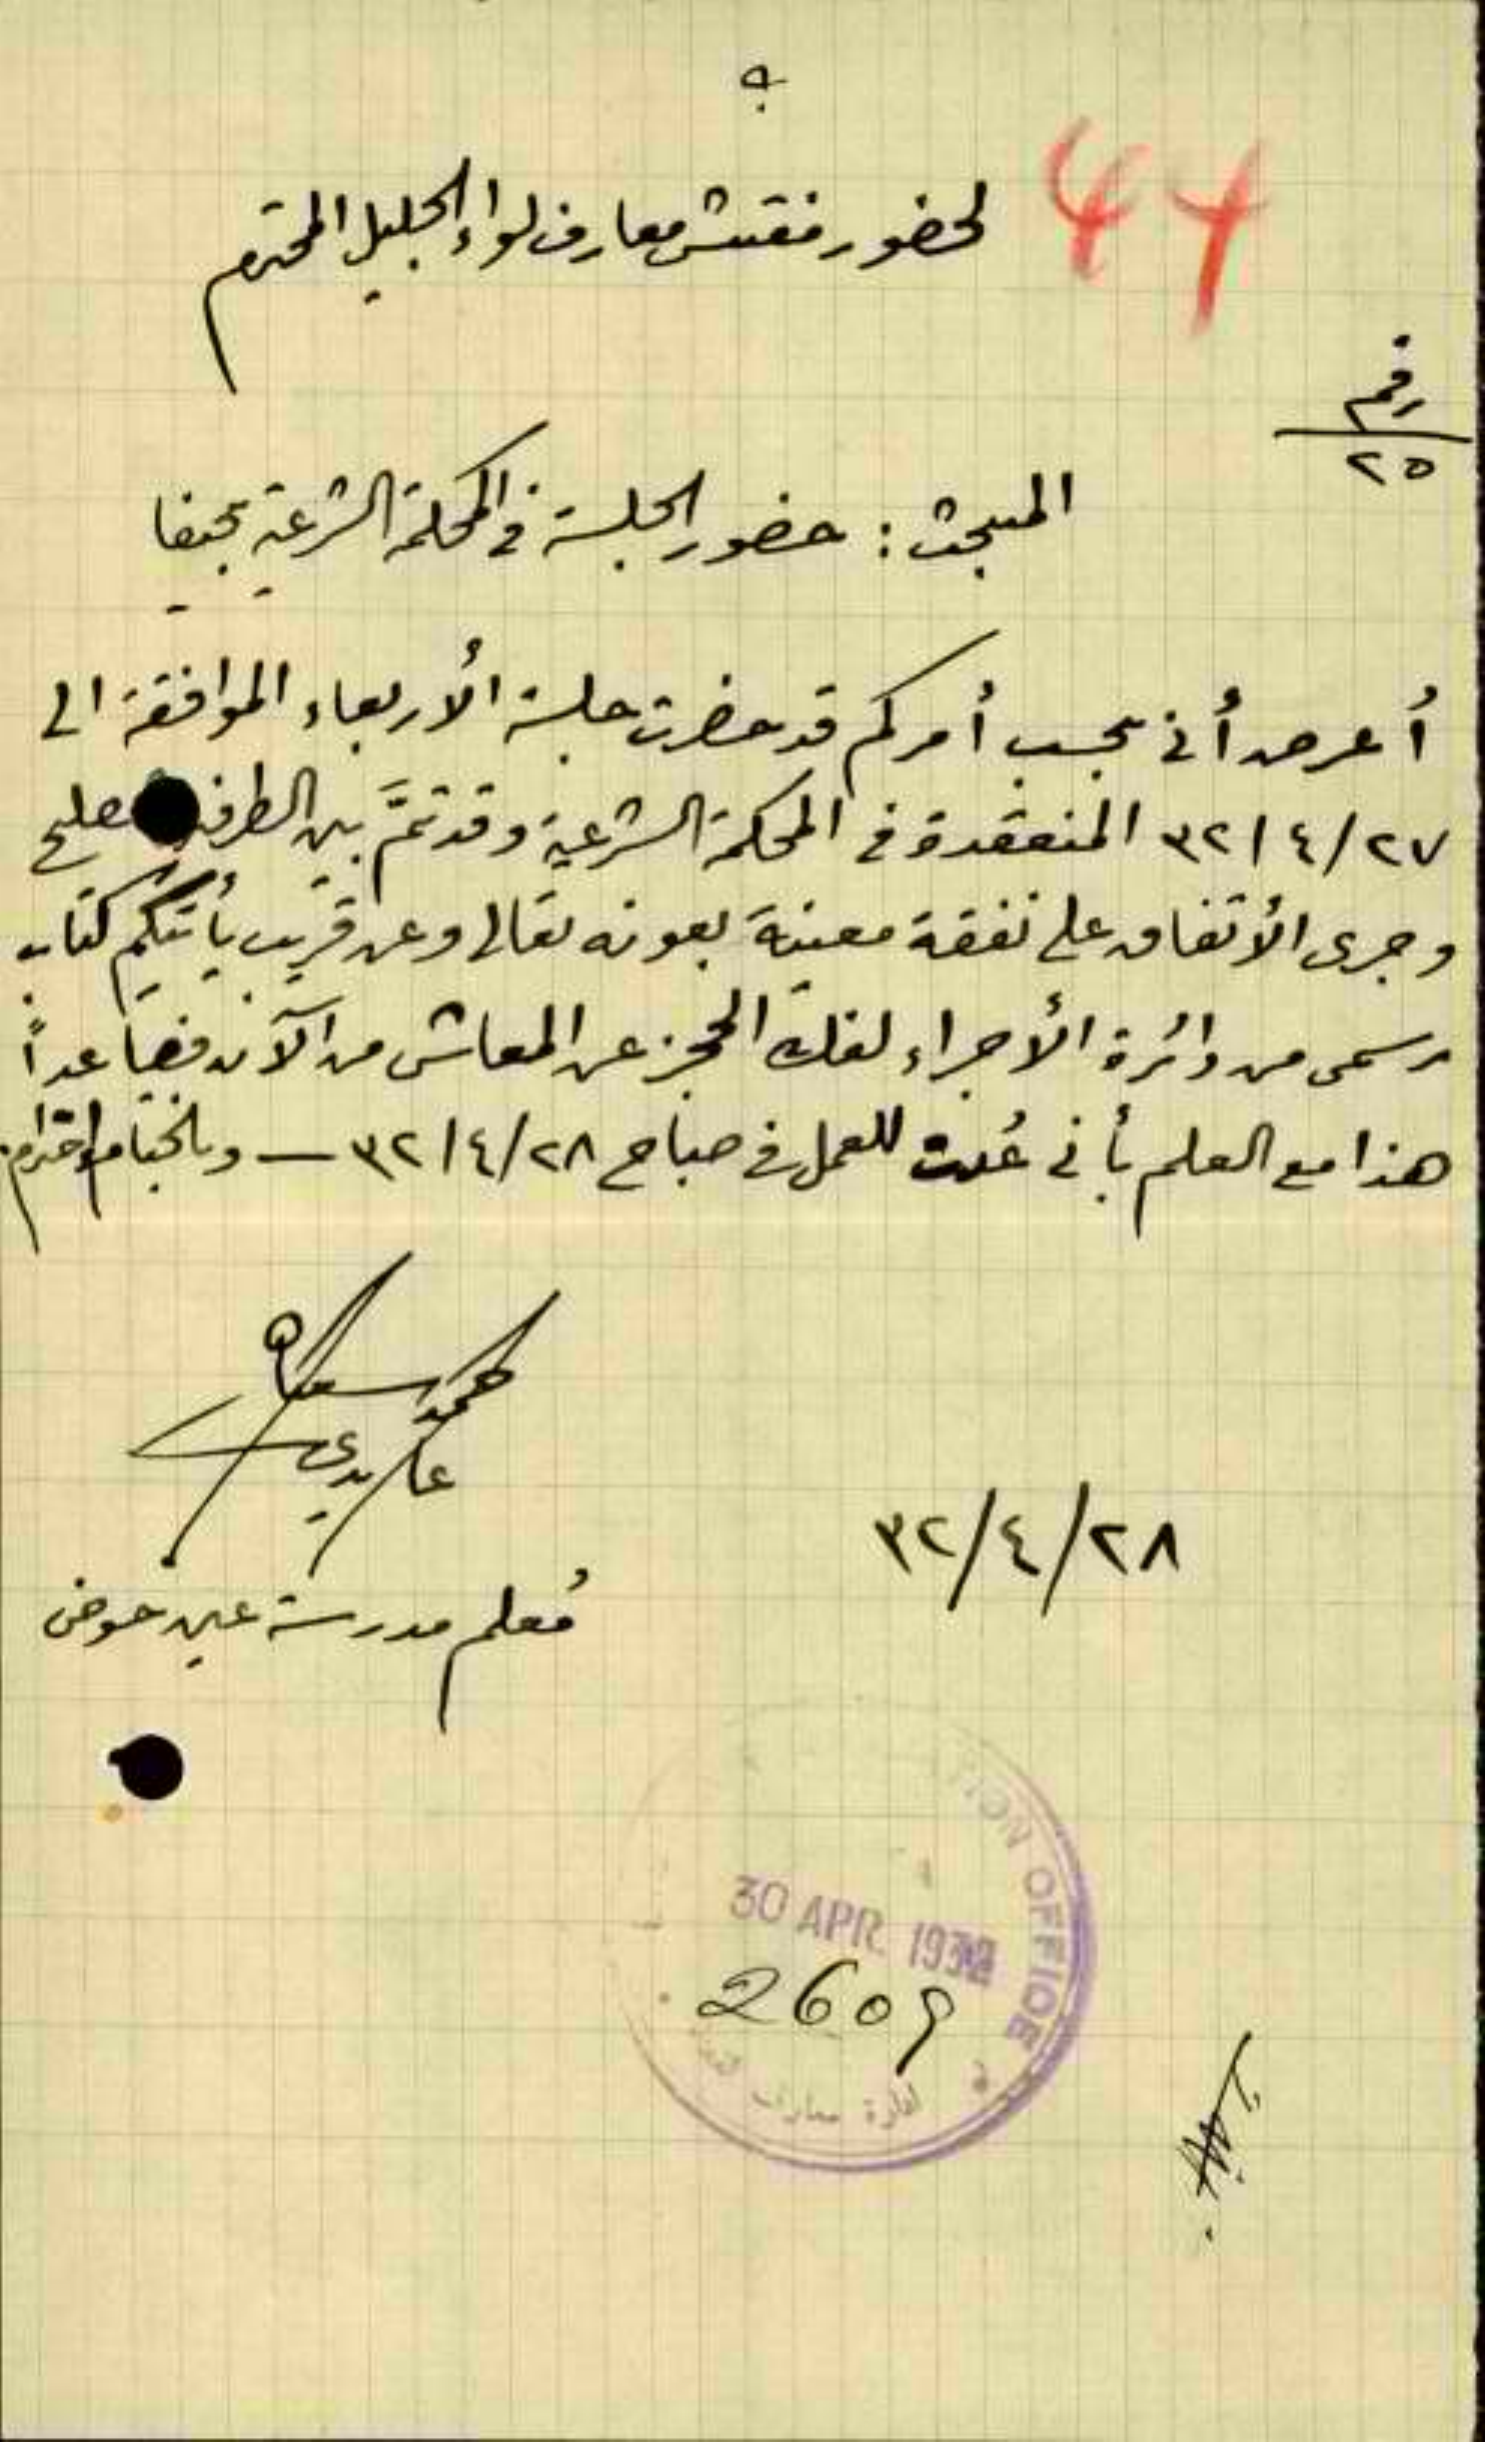 44
لحضور مفتش معارف لواء الجليل المحترم
رقم
٢٥
المبحث : حضور الجلسة في المحكمة الشرعية بحيفا
أعرض أني بحسب أمركم قد حضرت جلسة الأربعاء الموافقة الى
٢٧/٤/٣٢ المنعقدة في المحكمة الشرعية وقد تمَّ بين الطرفين صلح
وجرى الأتفاق على نفقة معينة بعونه تعالى وعن قريب يأتيكم كتاب
رسمي من دائرة الأجراء لفك الحجز عن المعاش من الآن فصاعداً
هذا مع العلم بأني عُدت للعمل في صباح ٢٨/٤/٣٢ — وبالختام احترام.
محمد
٢٨/٤/٣٢
مُعلم مدرسة عين حوض
OFFICE
30 APR 1932
2609
ادارة معارف